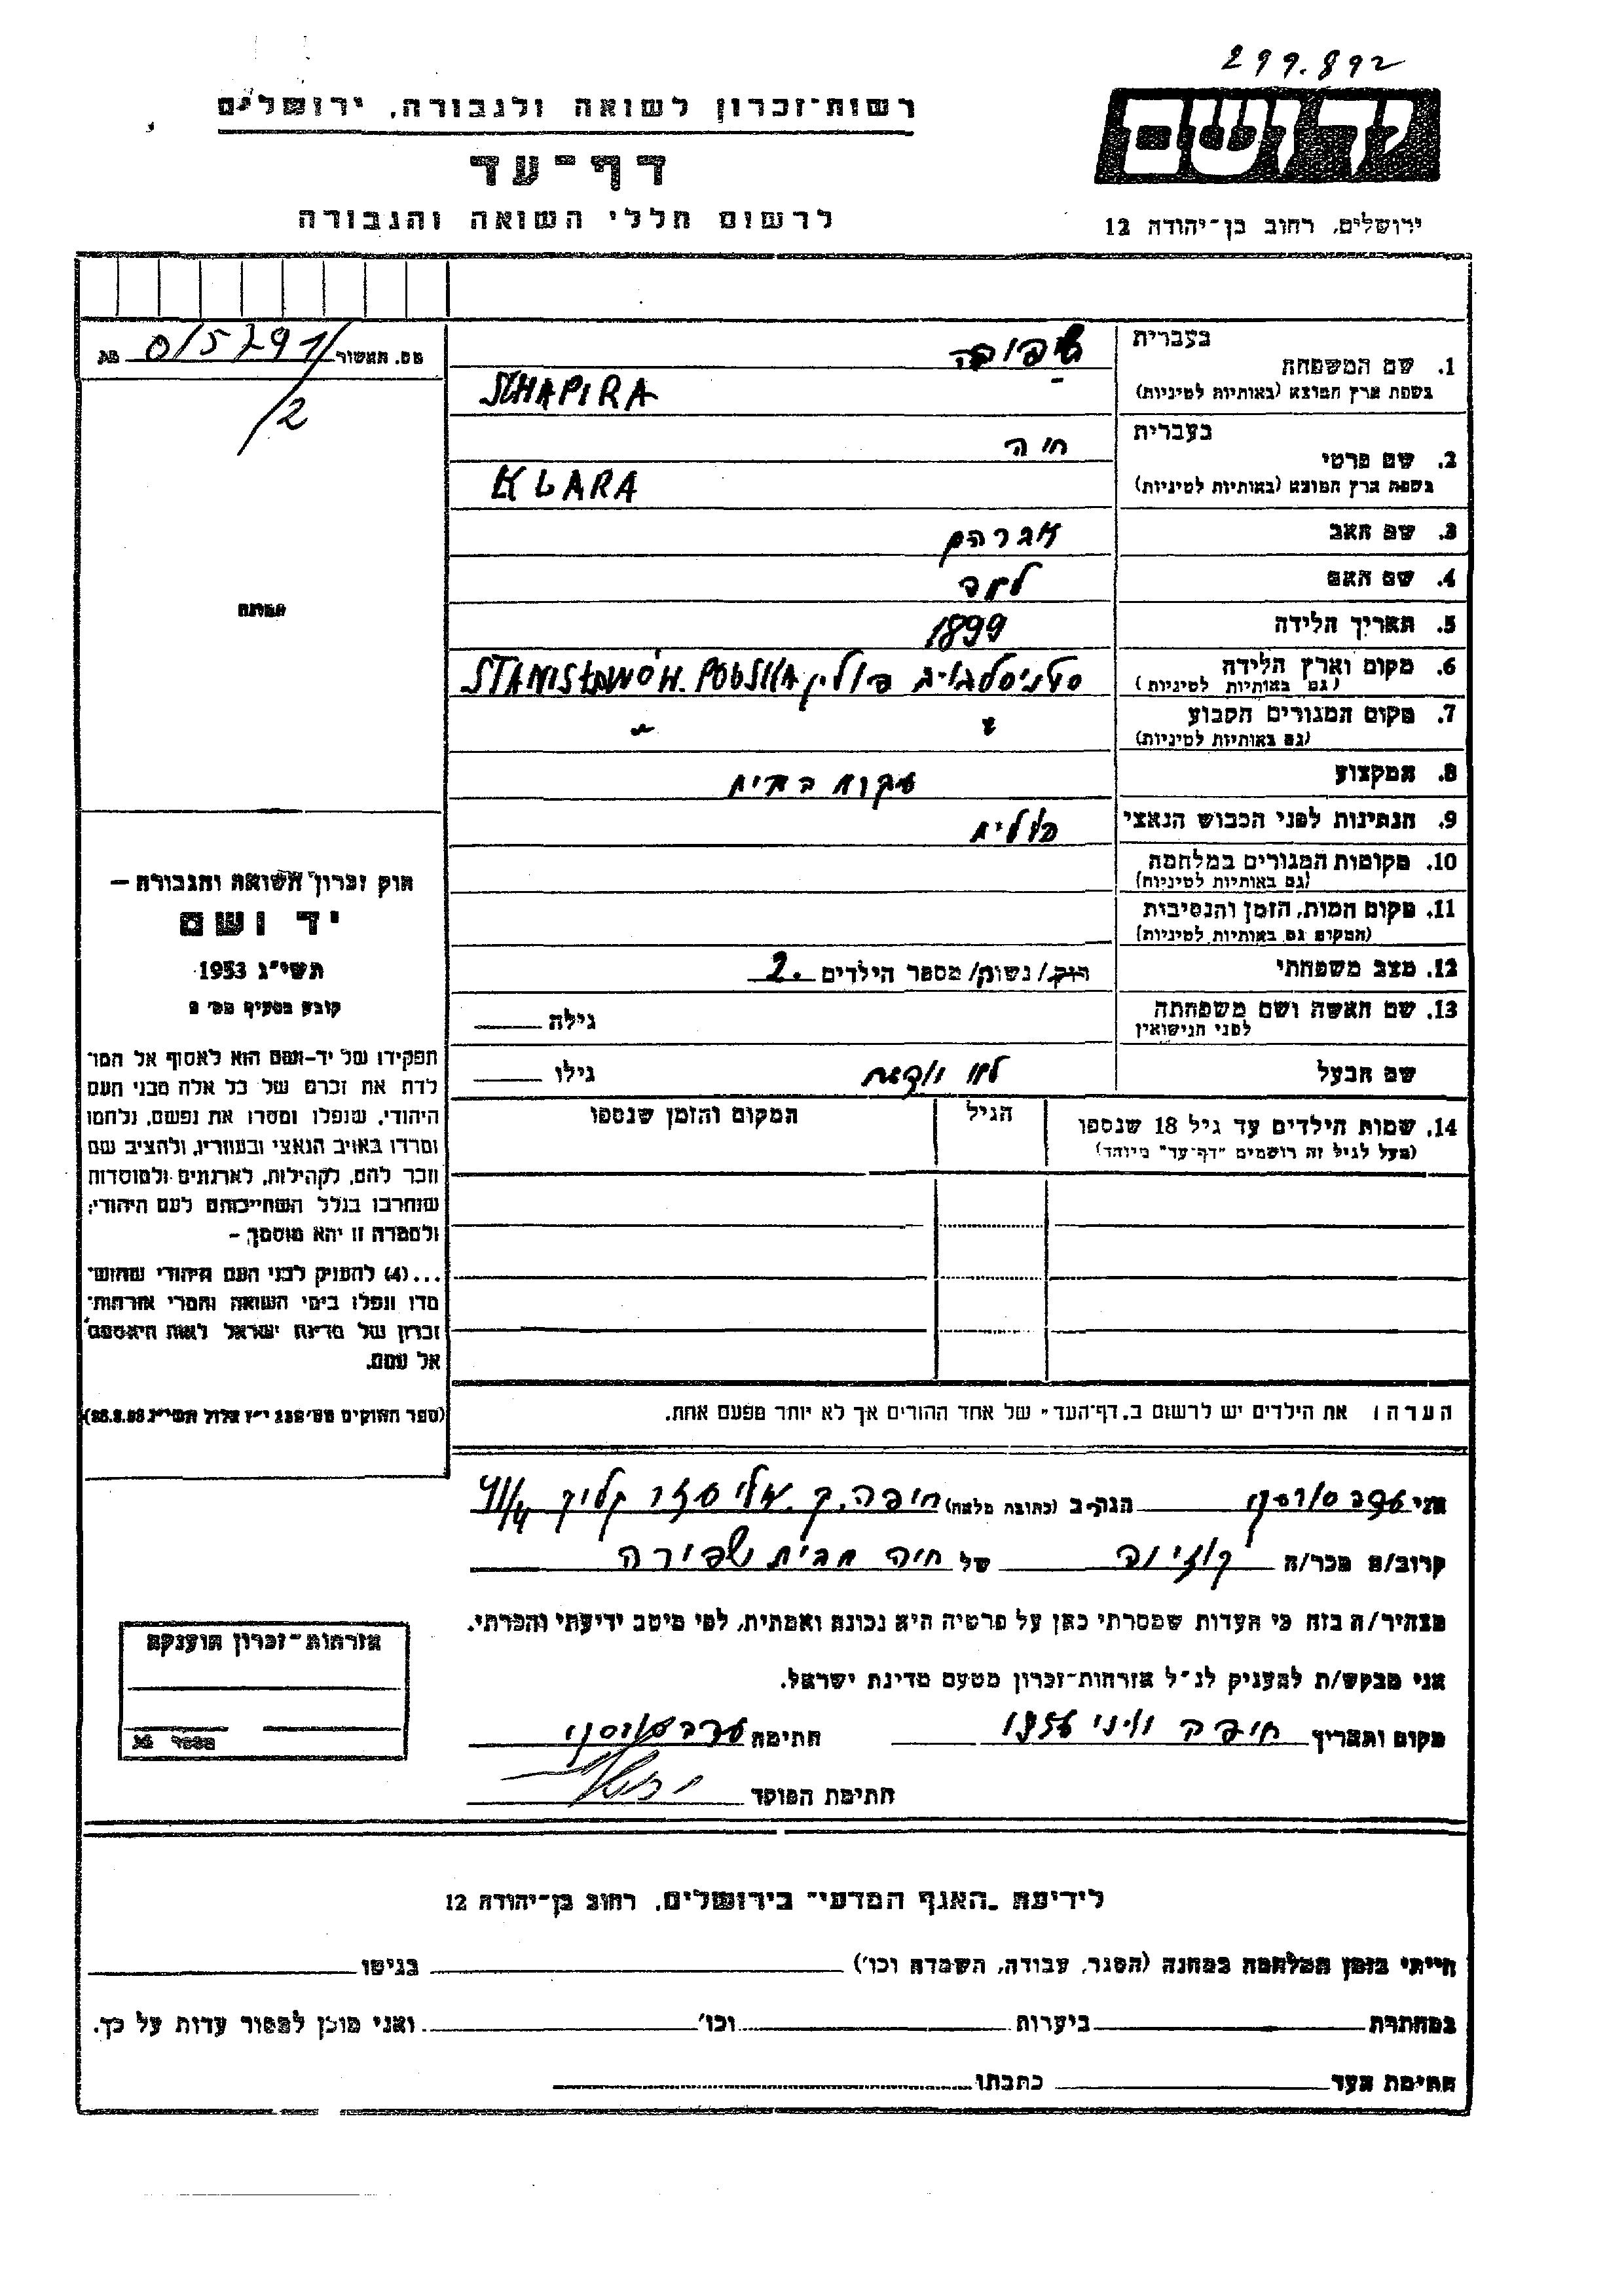 299.892
ידושם
רשות־זכרון לשואה ולגבורה, ירושלים
דף־עד
לרשום חללי השואה והגבורה
ירושלים, רחוב בן־יהודה 12
מס. האשור 0/5791/2 מת
בעברית
1. שם המשפחה שפירה
בשפת ארץ המוצא (באותיות לטיניות) SCHAPIRA
בעברית
2. שם פרטי חיה
בשפת ארץ המוצא (באותיות לטיניות) KLARA
3. שם האב אברהם
4. שם האם
5. תאריך הלידה 1899
6. מקום וארץ הלידה פולין STANISŁAWÓW. POLSKA
(גם באותיות לטיניות)
7. מקום המגורים הקבוע " "
(גם באותיות לטיניות)
8. המקצוע עקרת בית
9. הנתינות לפני הכבוש הנאצי פולנית
10. מקומות המגורים במלחמה
(גם באותיות לטיניות)
11. מקום המות, הזמן והנסיבות
(המקום גם באותיות לטיניות)
12. מצב משפחתי רוק/ נשוי/ מספר הילדים 2.
13. שם האשה ושם משפחתה גילה
לפני הנישואין
שם הבעל גילו
14. שמות הילדים עד גיל 18 שנספו הגיל המקום והזמן שנספו
(מעל לגיל זה רושמים "דף־עד" מיוחד)
הערה: את הילדים יש לרשום ב„דף־העד" של אחד ההורים אך לא יותר מפעם אחת.
תמונה
חוק זכרון השואה והגבורה —
יד ושם
תשי"ג 1953
קובע בסעיף מס' 2
תפקידו של יד־ושם הוא לאסוף אל המו־
לדת את זכרם של כל אלה מבני העם
היהודי, שנפלו ומסרו את נפשם, נלחמו
ומרדו באויב הנאצי ובעוזריו, ולהציב שם
וזכר להם, לקהילות, לארגונים ולמוסדות
שנחרבו בגלל השתייכותם לעם היהודי;
ולמטרה זו יהא מוסמך —
...(4) להעניק לבני העם היהודי שהוש־
מדו ונפלו בימי השואה והמרי אזרחות־
זכרון של מדינת ישראל לאות היאספם
אל עמם.
(ספר החוקים מס' 132 י"ז אלול תשי"ג 28.8.53)
אני הגר ב (כתובת מלאה) חיפה. ק. אליעזר קליון 41/4
קרוב/ה מכר/ה קוזינה של חיה מבית שפירה
מצהיר/ה בזה כי העדות שמסרתי כאן על פרטיה היא נכונה ואמתית, לפי מיטב ידיעתי והכרתי.
אני מבקש/ת להעניק לנ"ל אזרחות־זכרון מטעם מדינת ישראל.
מקום ותאריך חיפה יוני 1956 חתימה
חתימת הפוקד
אזרחות־זכרון הוענקה
מספר מת
לידיעת „האגף המדעי" בירושלים, רחוב בן־יהודה 12
הייתי בזמן המלחמה במחנה (הסגר, עבודה, השמדה וכו') בגיטו
במחתרת ביערות וכו' ואני מוכן למסור עדות על כך.
חתימת העד כתבתו